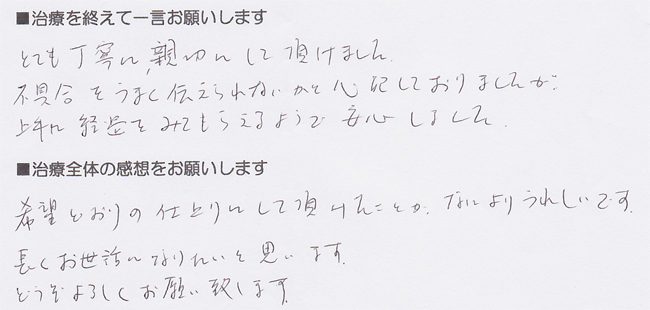 ■治療を終えて一言お願いします
とても丁寧に、親切にして頂けました。
不具合をうまく伝えられないかと心配しておりましたが、
上手に経過をみてもらえるようで安心しました。
■治療全体の感想をお願いします
希望どおりの仕上りにして頂けたことが、なによりうれしいです。
長くお世話になりたいと思います。
どうぞよろしくお願い致します。